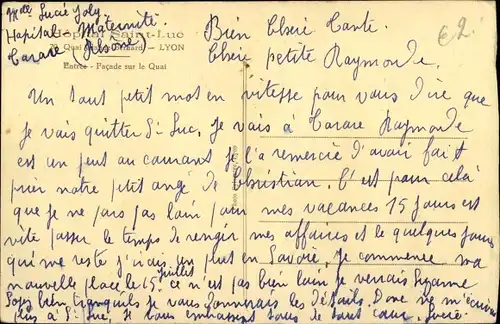 Mlle Lucie Joly
Hopital Maternité
Tarare (Rhône)
Hôpital Saint-Luc
Quai LYON
Entrée - Façade sur le Quai
€2
Bien Chère Tante
Chère petite Raymonde,
Un tout petit mot en vitesse pour vous dire que
je vais quitter St Luc, je vais à Tarare Raymonde
est un peut au courant je l'a remercie d'avoir fait
prier notre petit ange de Christian. C'est pour celà
que je ne pars pas loin pour mes vacances 15 jours est
vite passer le temps de rengir mes affaires et le quelques jours
qui me reste j'irais un peut en Savoie, je commence ma
nouvelle place le 15 juillet ce n'est pas bien loin je verrais Suzanne
Soyez bien tranquils je vous donnerais les détails. Donc ne m'écrivez
plus à St Luc, je vous embrassent tous de tout cœur, Lucie.